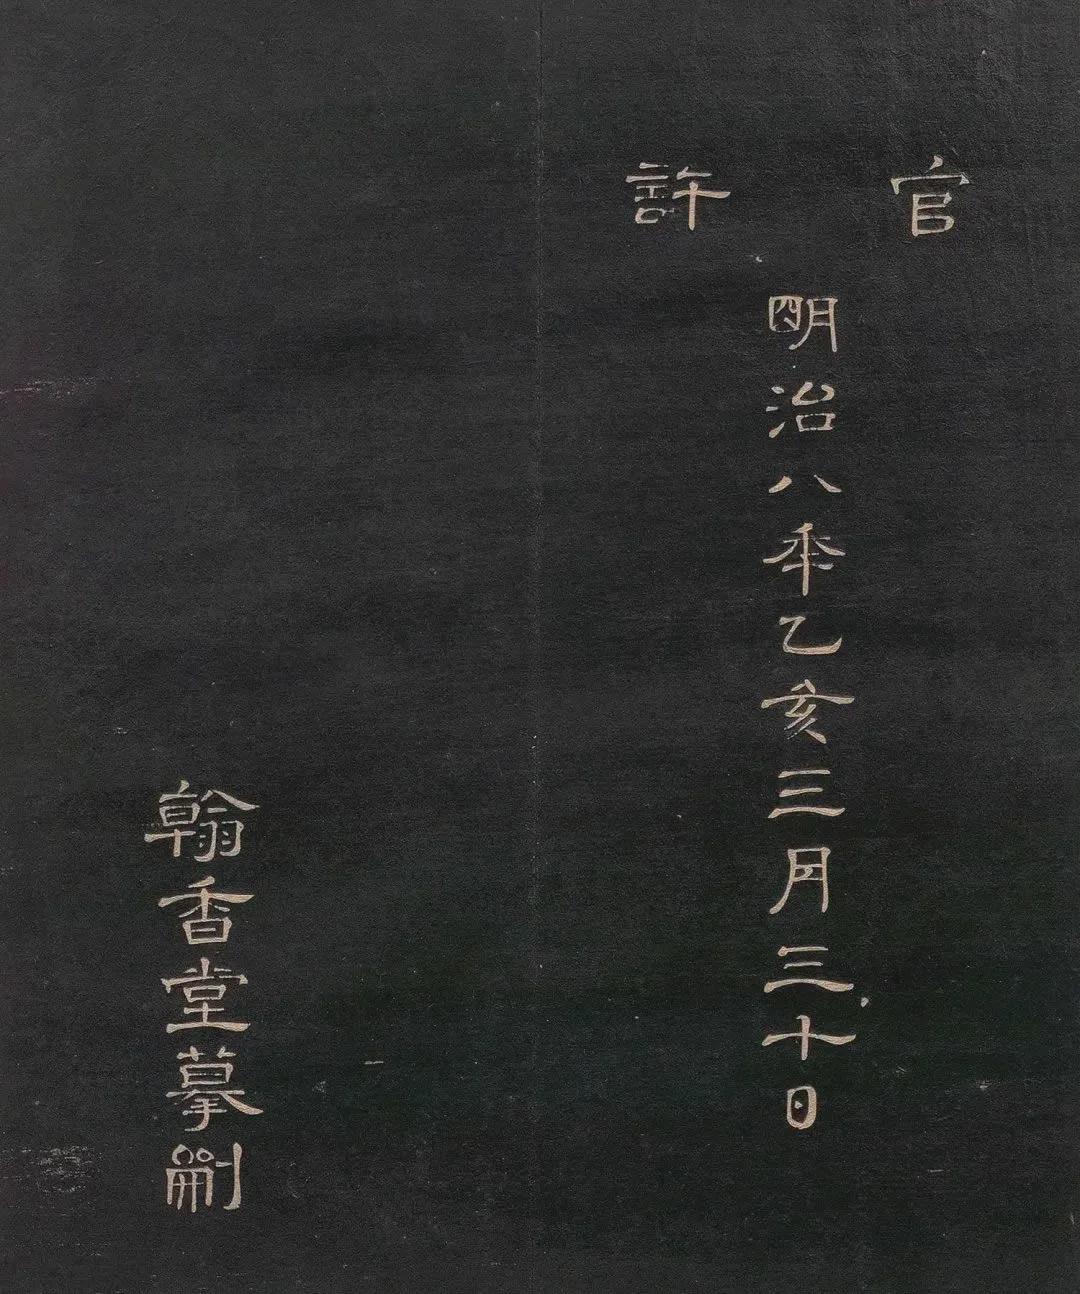 官許
明治八年乙亥三月三十日
翰香堂摹刪